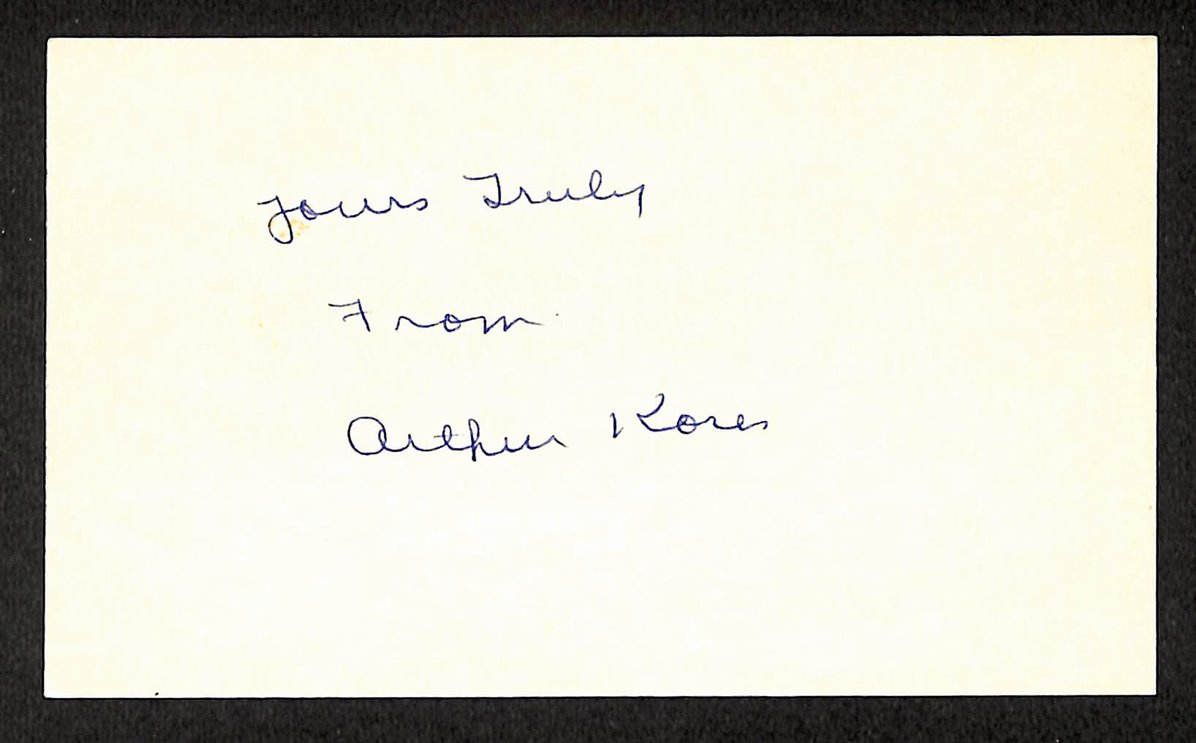 Yours Truly
From
Arthur Kores